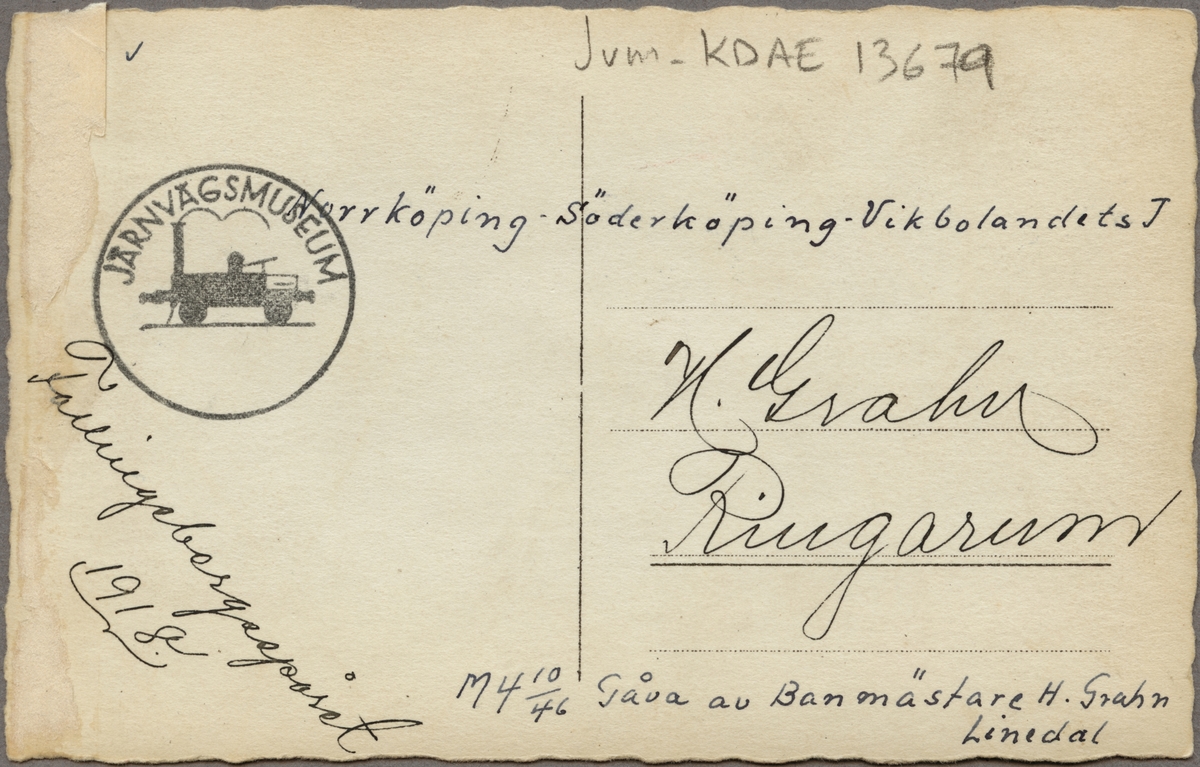 Jvm-KDAE 13679
JÄRNVÄGSMUSEUM
Norrköping-Söderköping-Vikbolandets J
H. Grahn
Ringarum
1918.
M4 10/46 Gåva av Banmästare H. Grahn
Linedal